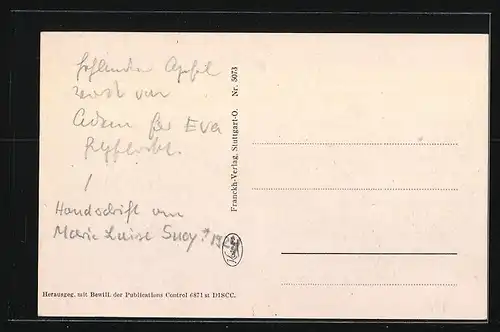 fehlender Apfel
wird von
Adam für Eva
gepflückt.
/
Handschrift von
Marie Luise
Franckh-Verlag, Stuttgart-O. Nr. 5073
Herausgeg. mit Bewill. der Publications Control 6871 st DISCC.